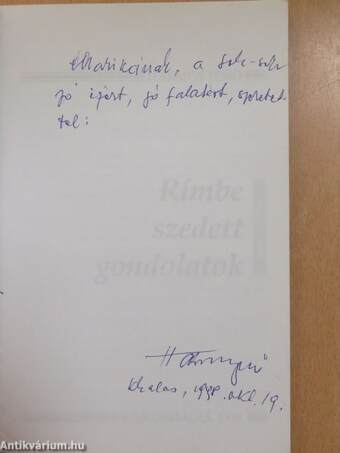 Marikának, a sok-sok
jó ízért, jó falatért, szeretet-
tel:
Rímbe
szedett
gondolatok
Khalas, 1998. okt. 19.
Antikvárium.hu